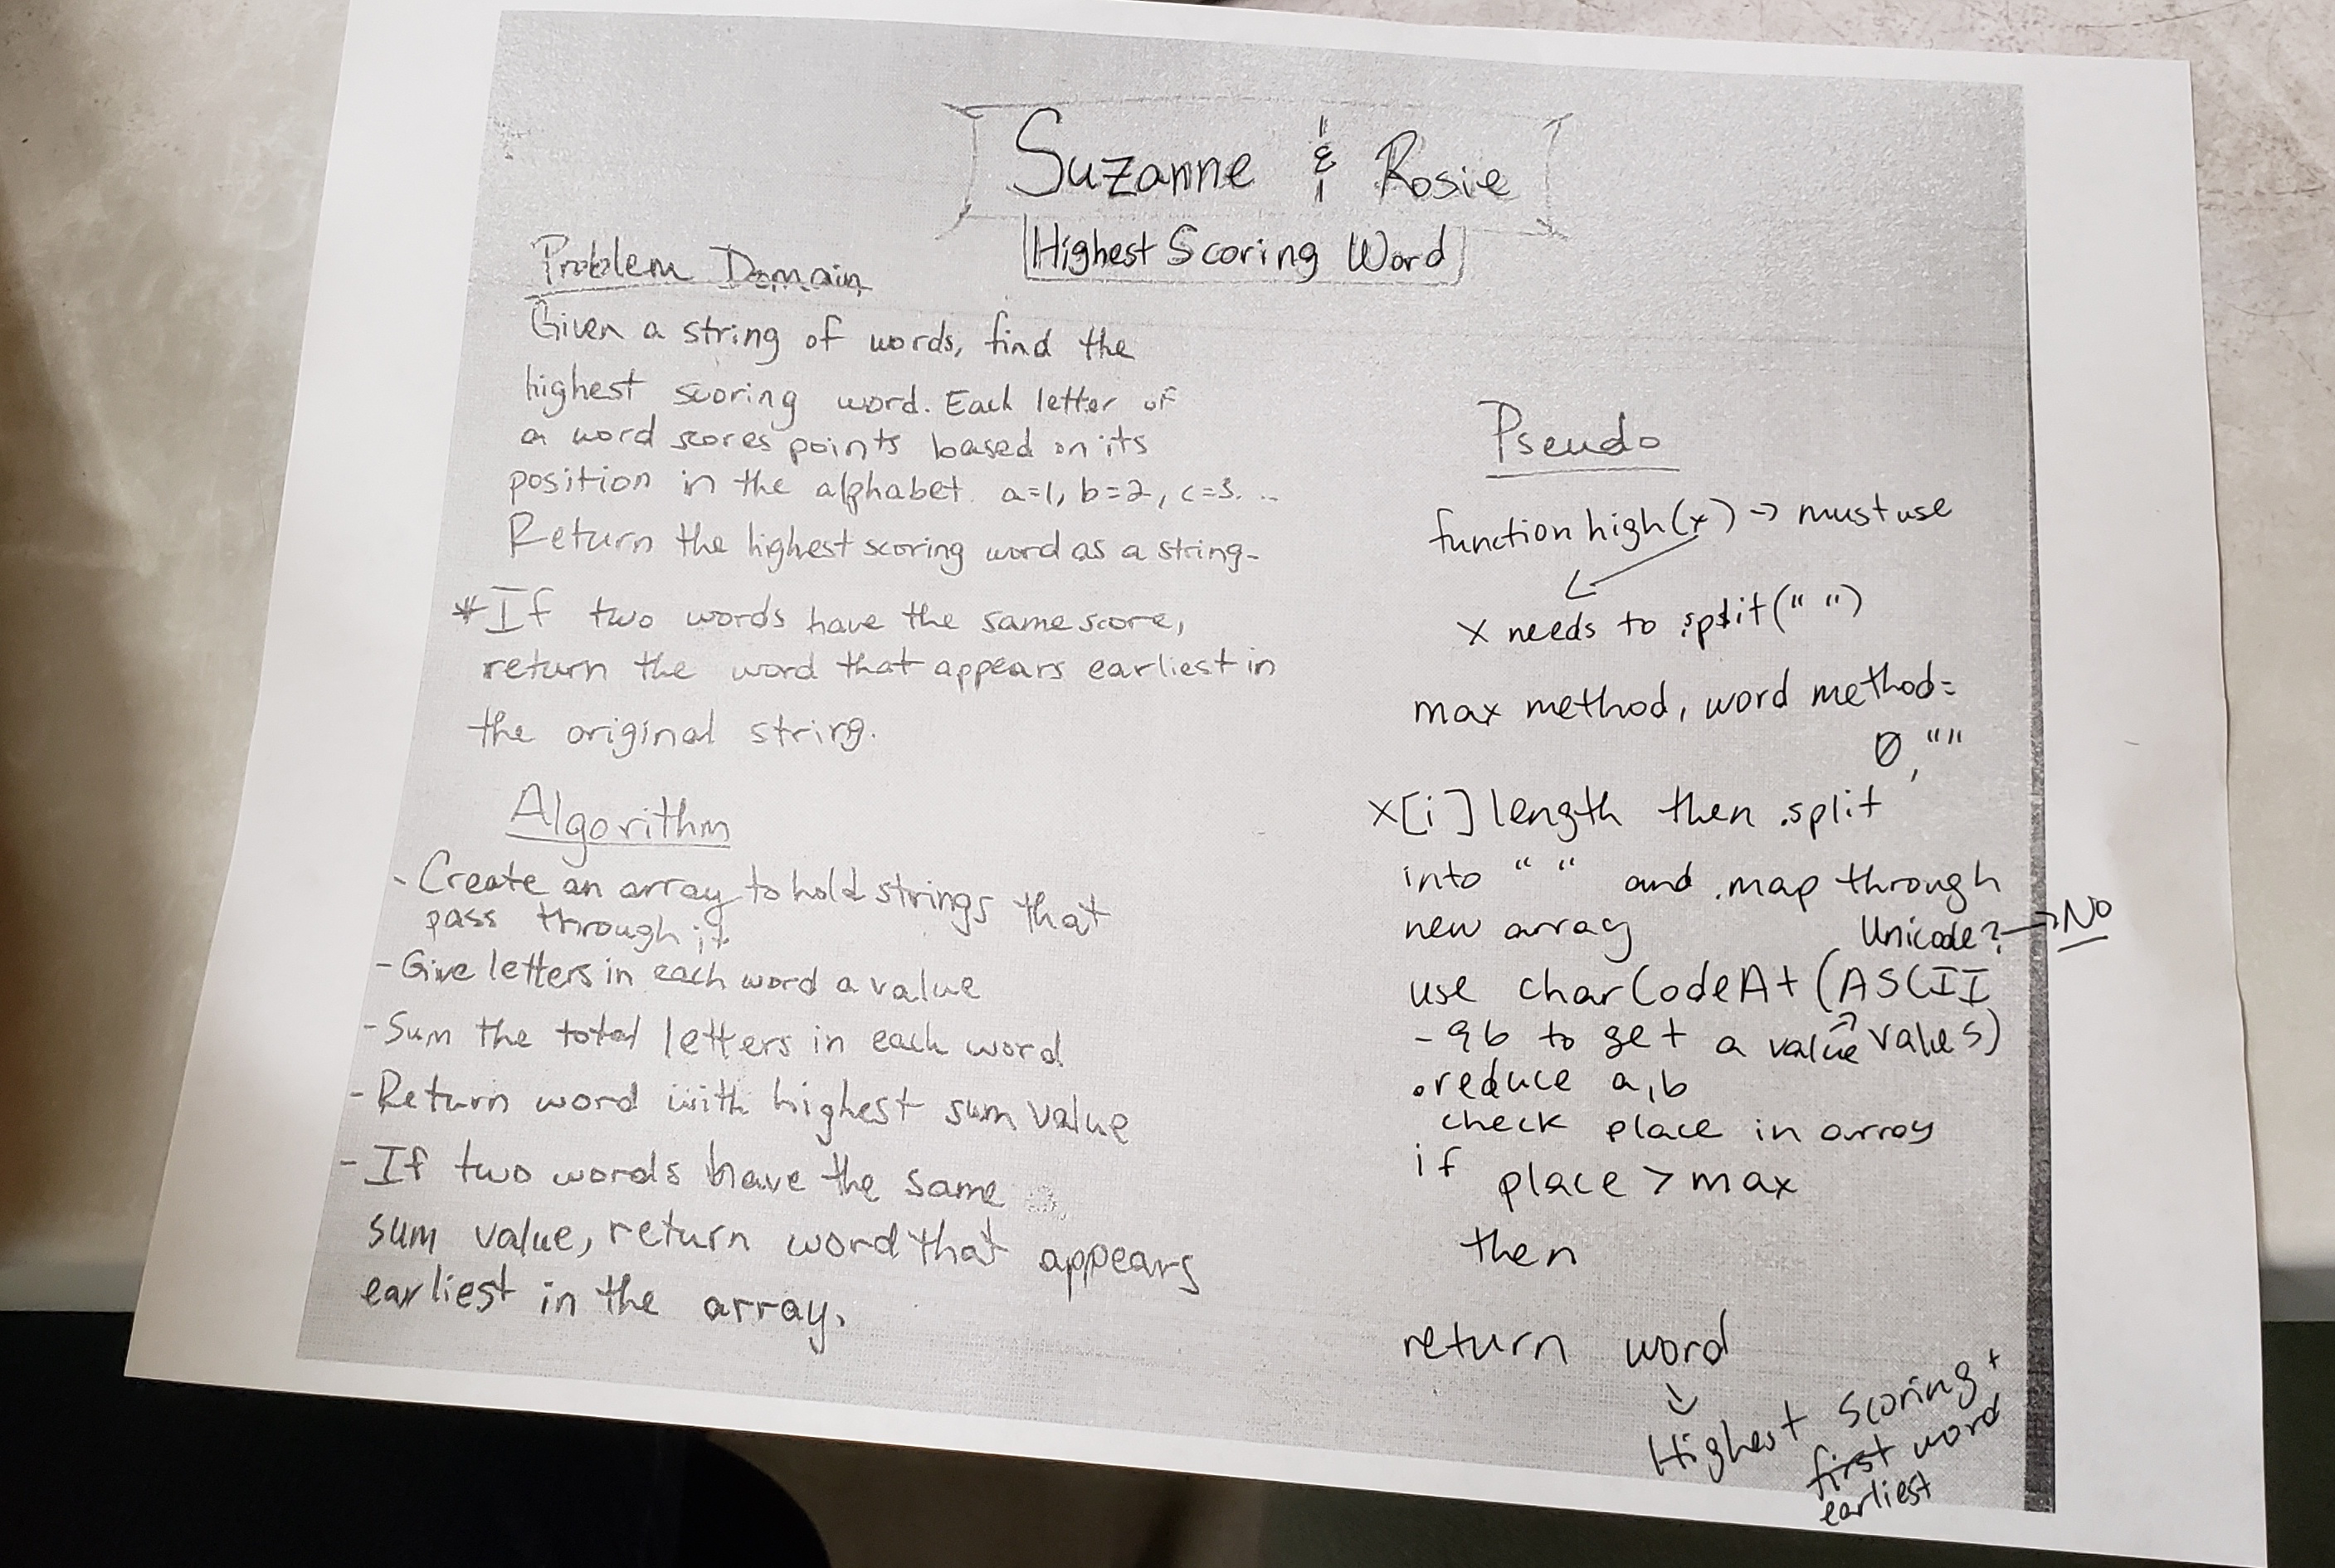 Suzanne & Rosie
Highest Scoring Word
Problem Domain
Given a string of words, find the
highest scoring word. Each letter of
a word scores points based on its
position in the alphabet. a=1, b=2, c=3...
Return the highest scoring word as a string.
*If two words have the same score,
return the word that appears earliest in
the original string.
Algorithm
- Create an array to hold strings that
pass through it.
- Give letters in each word a value
- Sum the total letters in each word
- Return word with highest sum value
- If two words have the same
sum value, return word that appears
earliest in the array.
Pseudo
function high(x) → must use
x needs to .split(" ")
max method, word method=
0, ""
x[i] length then .split
into " " and .map through
new array
Unicode? → No
use charCodeAt (ASCII
- 96 to get a value → values)
.reduce a,b
check place in array
if place > max
then
return word
Highest Scoring +
first word
earliest